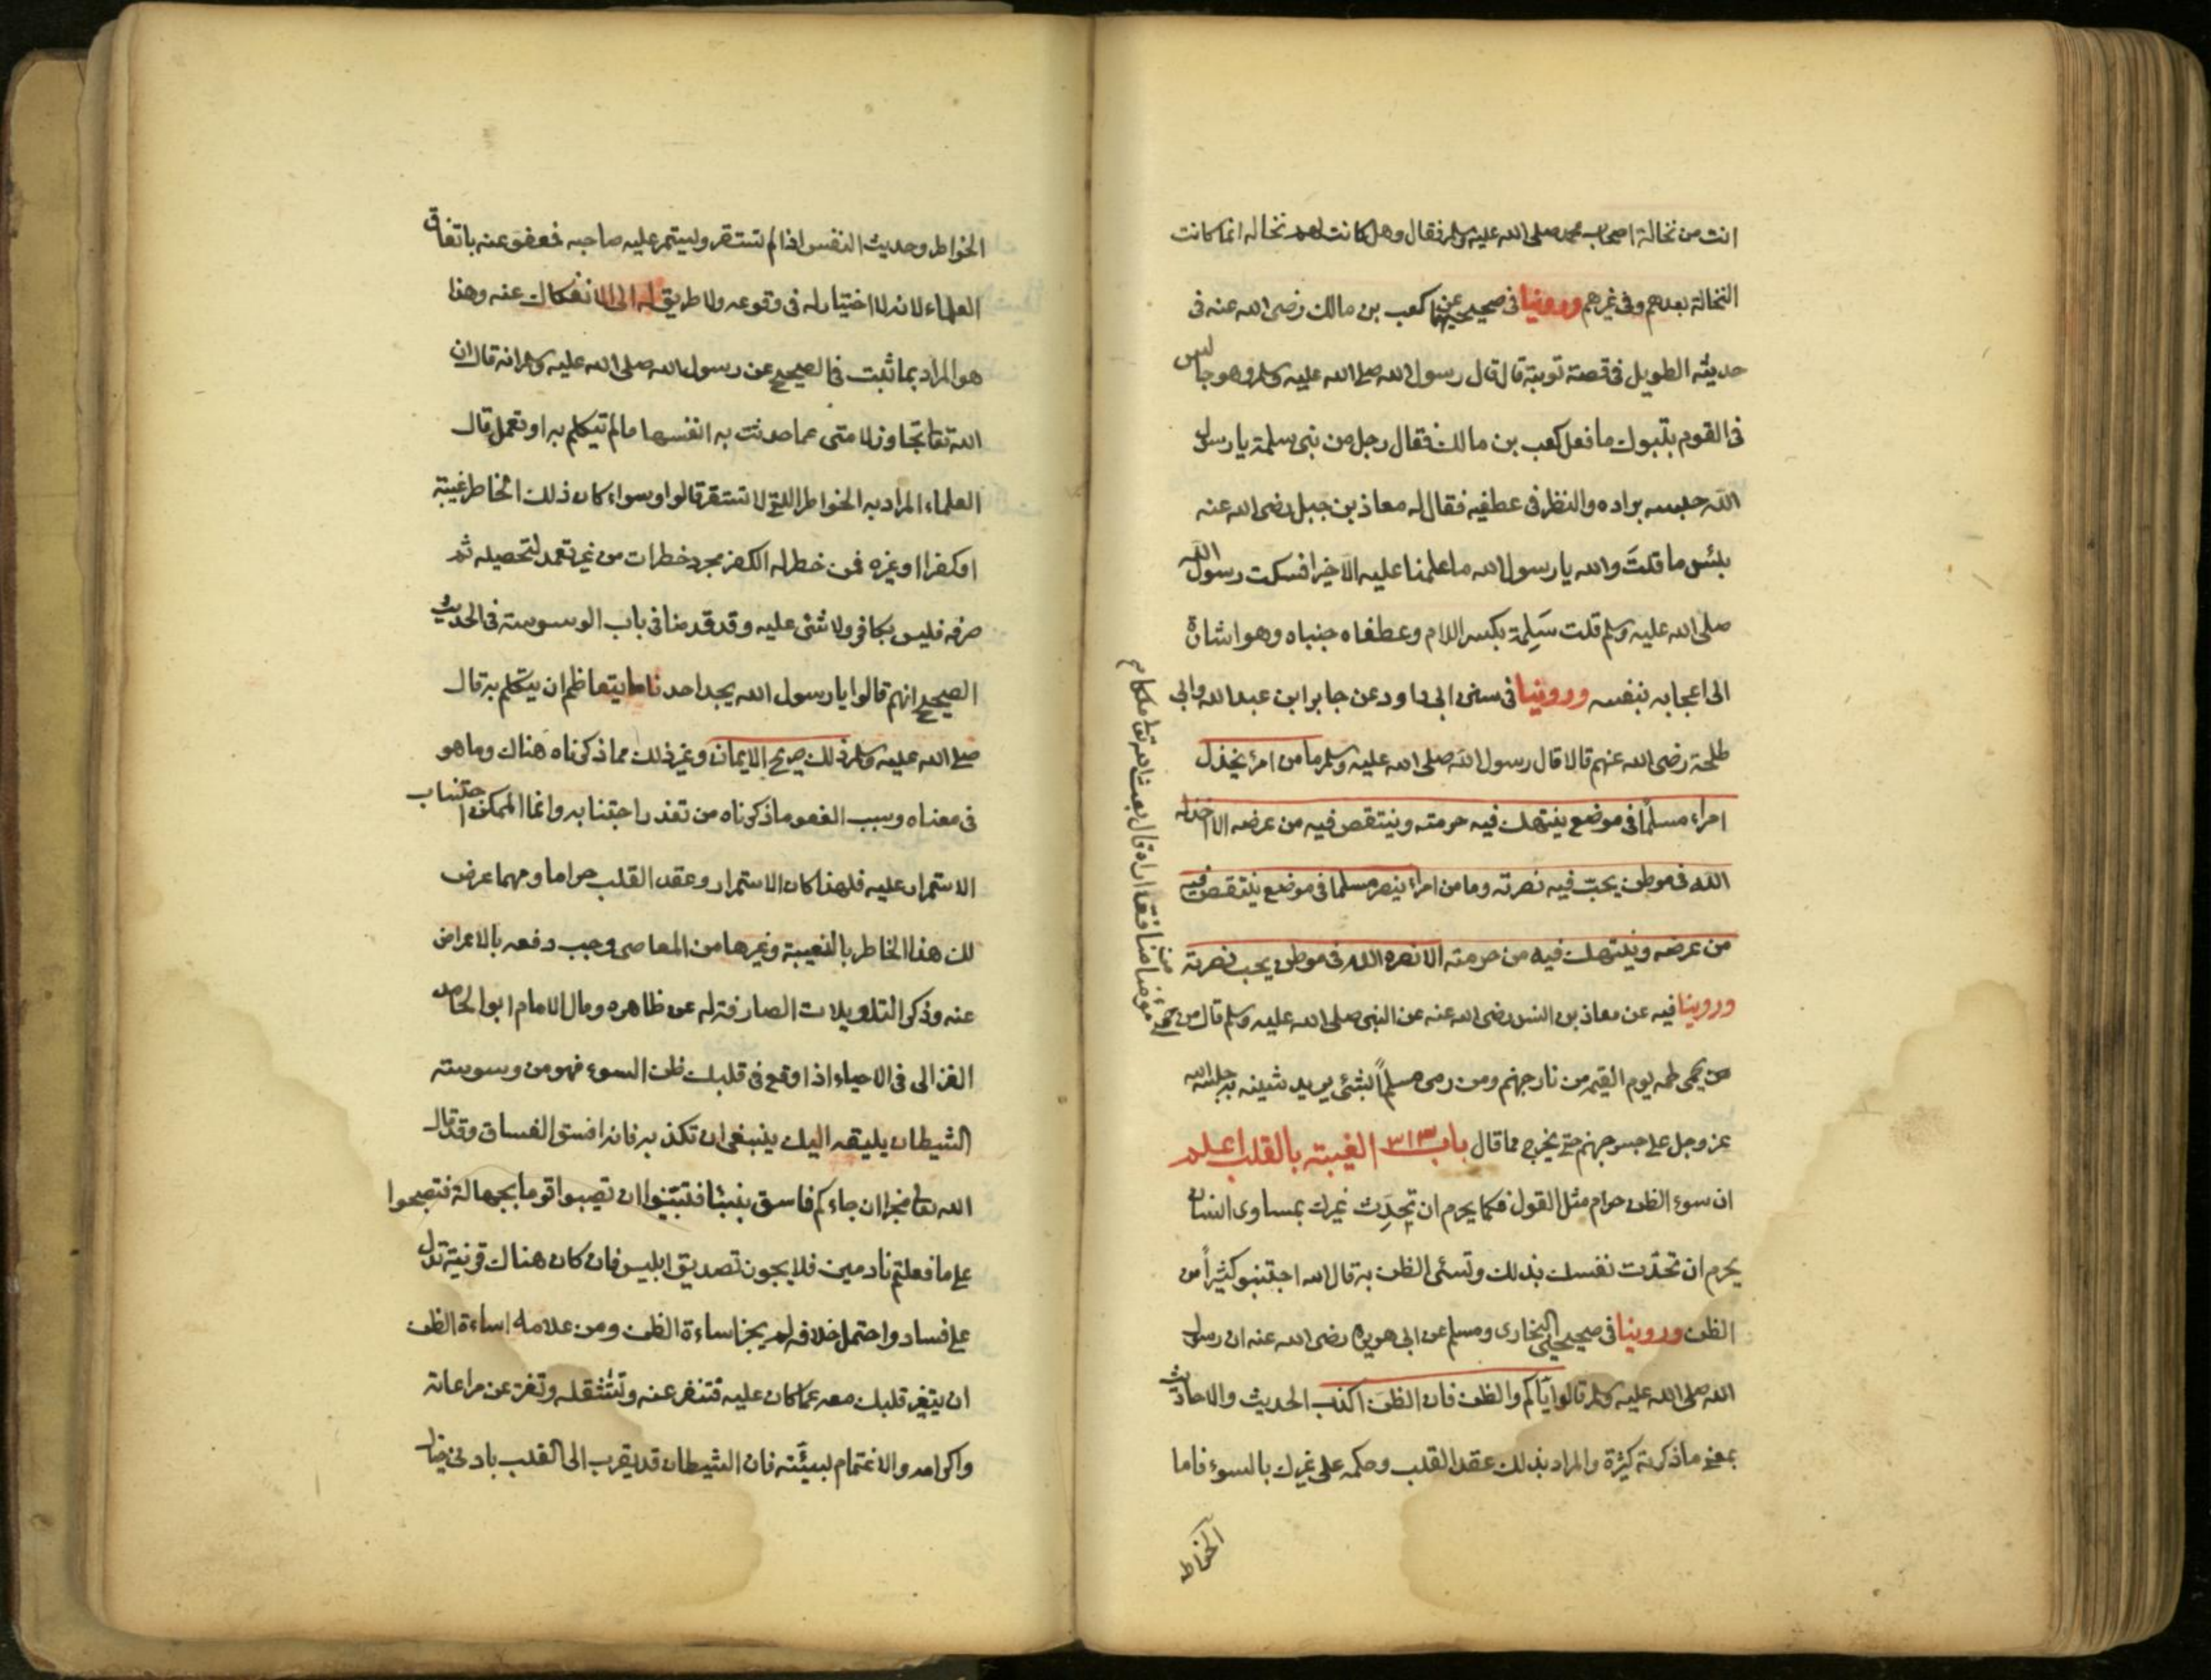 انت من نخالة اصحاب محمد صلى الله عليه وسلم فقال وهل كانت لهم نخالة انما كانت
النخالة بعدهم وفى غيرهم وروينا فى صحيحيهما عن كعب بن مالك رضى الله عنه فى
حديثه الطويل فى قصة توبته قال قال رسول الله صلى الله عليه وسلم وهو جالس
فى القوم بتبوك ما فعل كعب بن مالك فقال رجل من بنى سلمة يا رسول
الله حبسه برداه والنظر فى عطفيه فقال له معاذ بن جبل رضى الله عنه
بلئس ما قلتَ والله يا رسول الله ما علمنا عليه الا خيرا فسكت رسول الله
صلى الله عليه وسلم قلت سَلِمة بكسر اللام وعطفاه جنباه وهو اشارة
الى اعجابه بنفسه وروينا فى سنن ابى داود عن جابر ابن عبد الله وابى
طلحة رضى الله عنهم قالا قال رسول الله صلى الله عليه وسلم ما من امرئ يخذل
امراء مسلمًا فى موضع ينتهك فيه حرمته وينتقص فيه من عرضه الا خذله
الله فى موطن يحبّ فيه نصرته وما من امراء ينصر مسلما فى موضع ينتقص فيه
من عرضه وينتهك فيه من حرمته الا نصره الله فى موطن يحب نصرته
وروينا فيه عن معاذ بن انس رضى الله عنه عن النبى صلى الله عليه وسلم قال من حمى
مؤمنا من منافق اراه قال بعث الله تعا ملكا
يحمى لحمه يوم القيمة من نار جهنم ومن رمى مسلمًا بشئ يريد شينه به حبسه الله
عز وجل على جسر جهنم حتى يخرج مما قال باب ٣١٣ الغيبة بالقلب اعلم
ان سوء الظن حرام مثل القول فكما يحرم ان تحدِّث غيرك بمساوى انسان
يحرم ان تحدّث نفسك بذلك وتسئ الظن به قال الله اجتنبو كثيرًا من
الظن وروينا فى صحيحى البخارى ومسلم عن ابى هويره رضى الله عنه ان رسول
الله صلى الله عليه وسلم قالوا ايّاكم والظن فان الظن اكذب الحديث والاحاديث
بمعنى ما ذكرته كثيرة والمراد بذلك عقد القلب وحكمه على غيرك بالسوء فاما
الخواطر
الخواطر وحديث النفس اذا لم تستقر وليستمر عليه صاحبه فعفو عنه باتفاق
العلماء لانه لا اختيار له فى وقوعه ولا طريق له الى الانفكاك عنه وهذا
هو المراد بما ثبت فى الصحيح عن رسول الله صلى الله عليه وسلم انه قال ان
الله تعا تجاوز لامتى عما حدثت به انفسها ما لم تتكلم به او تعمل قال
العلماء المراد به الخواطر اللتى لا تستقر قالوا وسواء كان ذلك الخاطر غيبة
او كفرا او غيره فمن خطر له الكفر مجرد خطرات من غير تعمد لتحصيله ثم
صرفه فليس بكافر ولا شئ عليه وقد قدمنا فى باب الوسوسة فى الحديث
الصحيح انهم قالوا يا رسول الله يجد احدنا ما يتعاظم ان يتكلم به قال
صلى الله عليه وسلم ذلك صريح الايمان وغير ذلك مما ذكرناه هناك وما هو
فى معناه وسبب العفو ما ذكرناه من تعذر اجتنابه وانما الممكن اجتناب
الاستمرار عليه فلهذا كان الاستمرار وعقد القلب حراما ومهما عرض
لك هذا الخاطر بالغيبة وغيرها من المعاصى وجب دفعه بالاعراض
عنه وذكر التاويلات الصارفة له عن ظاهره وقال الامام ابو الحامد
الغزالى فى الاحياء اذا وقع فى قلبك ظن السوء فهو من وسوسة
الشيطان يليقه اليك ينبغى ان تكذبه فانه افسق الفساق وقد قال
الله تعا مخبرا ان جاءكم فاسق بنبئا فتبيّنوا ان تصيبوا قوما بجهالة فتصبحوا
على ما فعلتم نادمين فلا يجوز تصديق ابليس فان كان هناك قرنية تدل
على فساد واحتمل خلافه لم يجز اساءة الظن ومن علامة اساءة الظن
ان يتغير قلبك معه عما كان عليه فتنفر عنه وتستثقله وتفتر عن مراعاته
واكرامه والاغتمام لسيئَته فان الشيطان قد يقرب الى القلب بادنى خيال